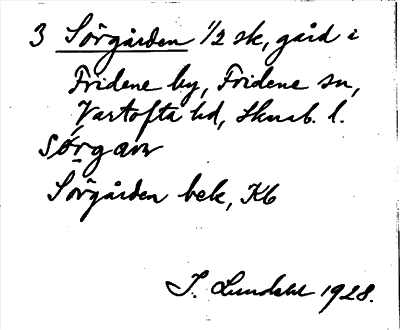 3 Sörgården 1/2 sk, gård i
Fridene by, Fridene sn,
Vartofta hd, Skarab. l.
sørgɑɷr
Sörgården bek, Kb
I. Lundahl 1928.